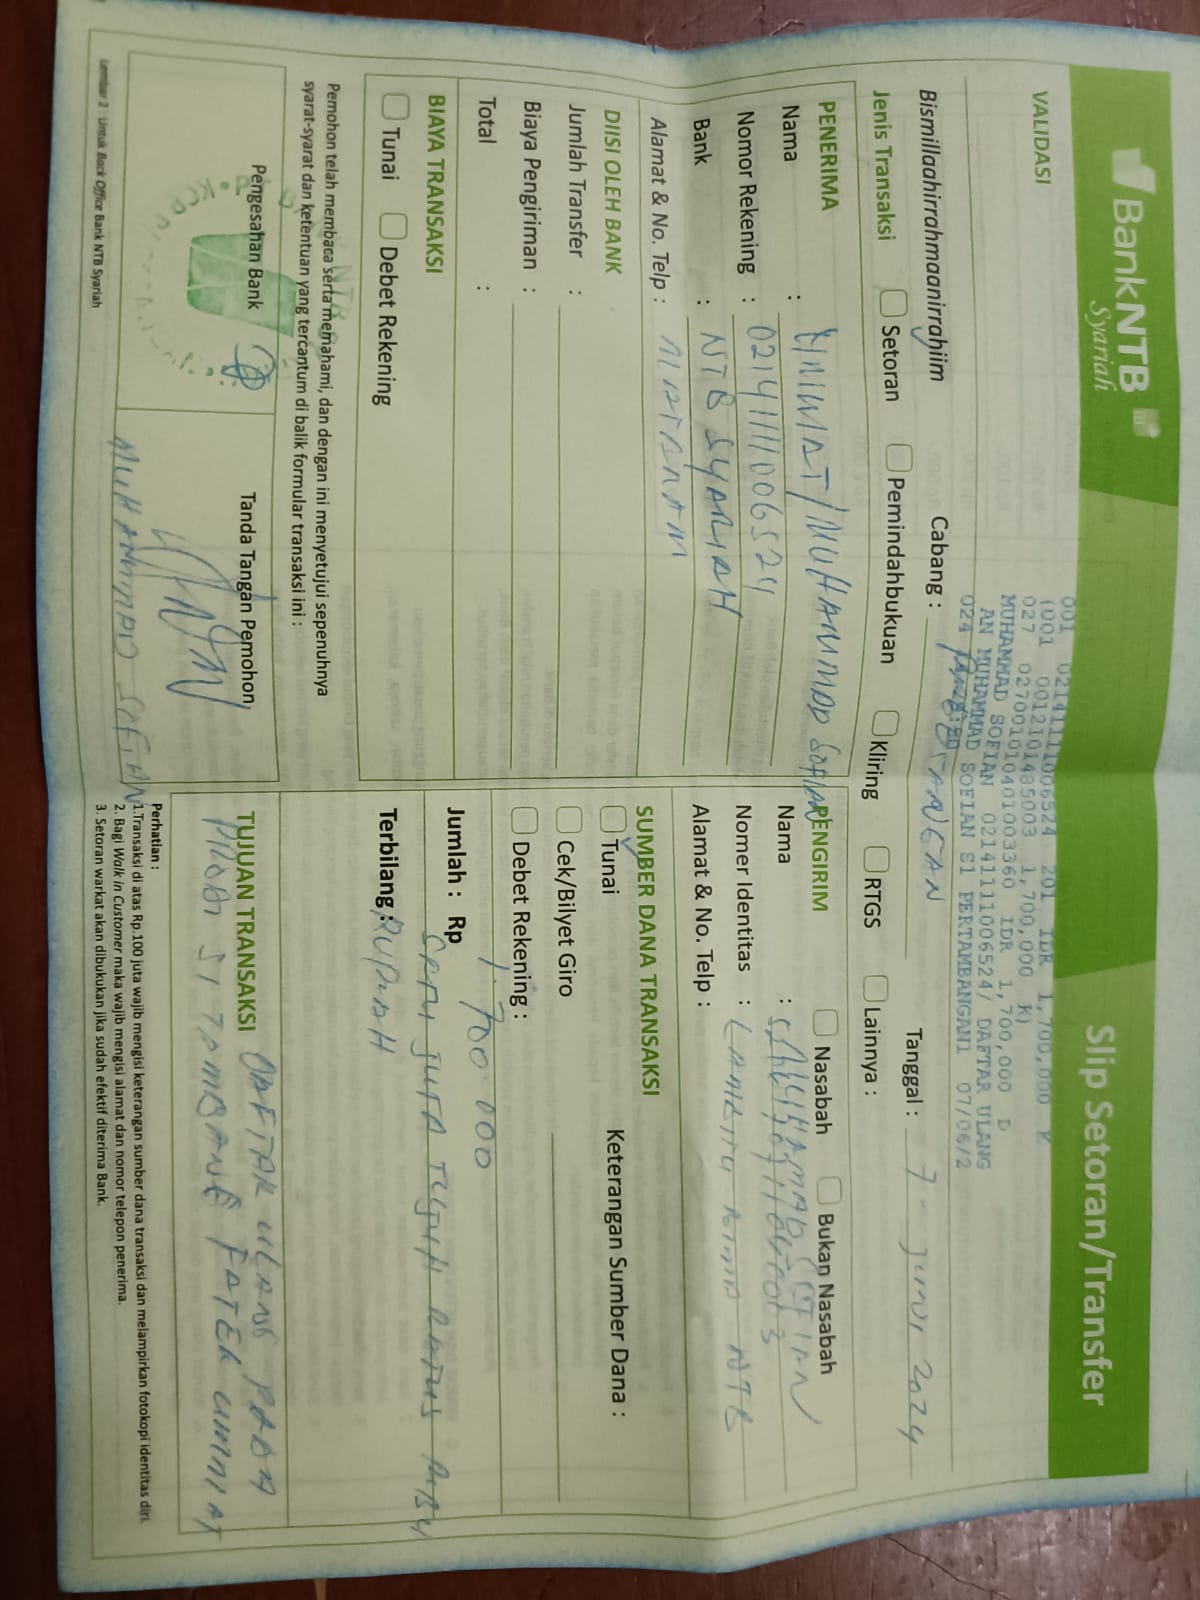 BankNTB
Syariah
Slip Setoran/Transfer
VALIDASI
001 021411111006524 201 IDR 1,700,000 K
(001 0012101485003 1,700,000 K)
027 027001010401003360 IDR 1,700,000 D
MUHAMMAD SOFIAN 02141111006524/ DAFTAR ULANG
AN MUHAMMAD SOFIAN S1 PERTAMBANGAN1 07/06/2
024
Bismillaahirrahmaanirrahiim
Cabang :
Tanggal : 7 - JUNI, 2024
Jenis Transaksi
Setoran
Pemindahbukuan
Kliring
RTGS
Lainnya :
PENERIMA
Nama : UNIWAT/MUHAMMAD SOFIAN
Nomor Rekening : 021411111006524
Bank : NTB SYARIAH
Alamat & No. Telp : MATARAM
PENGIRIM
Nasabah
Bukan Nasabah
Nama : MUHAMMAD SOFIAN
Nomer Identitas :
Alamat & No. Telp :
DIISI OLEH BANK
Jumlah Transfer :
Biaya Pengiriman :
Total :
SUMBER DANA TRANSAKSI
Tunai
Keterangan Sumber Dana :
Cek/Bilyet Giro
Debet Rekening :
BIAYA TRANSAKSI
Tunai
Debet Rekening
Jumlah : Rp 1.700.000
Terbilang : SATU JUTA TUJUH RATUS RIBU
RUPIAH
Pemohon telah membaca serta memahami, dan dengan ini menyetujui sepenuhnya
syarat-syarat dan ketentuan yang tercantum di balik formular transaksi ini :
Pengesahan Bank
Tanda Tangan Pemohon
MUHAMMAD SOFIAN
TUJUAN TRANSAKSI DAFTAR ULANG PADA
PRODI S1 TAMBANG FATEK UMMAT
Perhatian :
1.Transaksi di atas Rp.100 juta wajib mengisi keterangan sumber dana transaksi dan melampirkan fotokopi identitas diri.
2. Bagi Walk in Customer maka wajib mengisi alamat dan nomor telepon penerima.
3. Setoran warkat akan dibukukan jika sudah efektif diterima Bank.
Lembar 2 : Untuk Back Office Bank NTB Syariah